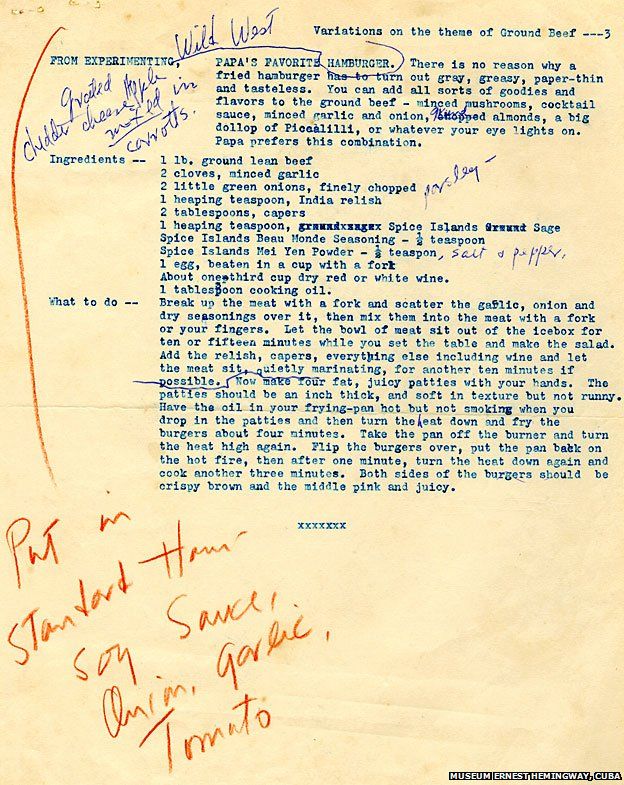 Variations on the theme of Ground Beef ---3
Wild West
FROM EXPERIMENTING, PAPA'S FAVORITE HAMBURGER. There is no reason why a
fried hamburger has to turn out gray, greasy, paper-thin
and tasteless. You can add all sorts of goodies and
flavors to the ground beef - minced mushrooms, cocktail
sauce, minced garlic and onion, chopped almonds, a big
dollop of Piccalilli, or whatever your eye lights on.
Papa prefers this combination.
Grated Apple
chedder cheese
mixed in
carrotts.
Ingredients -- 1 lb. ground lean beef
2 cloves, minced garlic
2 little green onions, finely chopped parsley -
1 heaping teaspoon, India relish
2 tablespoons, capers
1 heaping teaspoon, Spice Islands Sage
Spice Islands Beau Monde Seasoning - ½ teaspoon
Spice Islands Mei Yen Powder - ½ teaspon, Salt & pepper,
1 egg, beaten in a cup with a fork
About one-third cup dry red or white wine.
1 tablespoon cooking oil.
What to do -- Break up the meat with a fork and scatter the garlic, onion and
dry seasonings over it, then mix them into the meat with a fork
or your fingers. Let the bowl of meat sit out of the icebox for
ten or fifteen minutes while you set the table and make the salad.
Add the relish, capers, everything else including wine and let
the meat sit, quietly marinating, for another ten minutes if
possible. Now make four fat, juicy patties with your hands. The
patties should be an inch thick, and soft in texture but not runny.
Have the oil in your frying-pan hot but not smoking when you
drop in the patties and then turn the heat down and fry the
burgers about four minutes. Take the pan off the burner and turn
the heat high again. Flip the burgers over, put the pan back on
the hot fire, then after one minute, turn the heat down again and
cook another three minutes. Both sides of the burgers should be
crispy brown and the middle pink and juicy.
xxxxxxx
Put in
Standard Ham-
Soy Sauce,
Onion, Garlic,
Tomato
MUSEUM ERNEST HEMINGWAY, CUBA